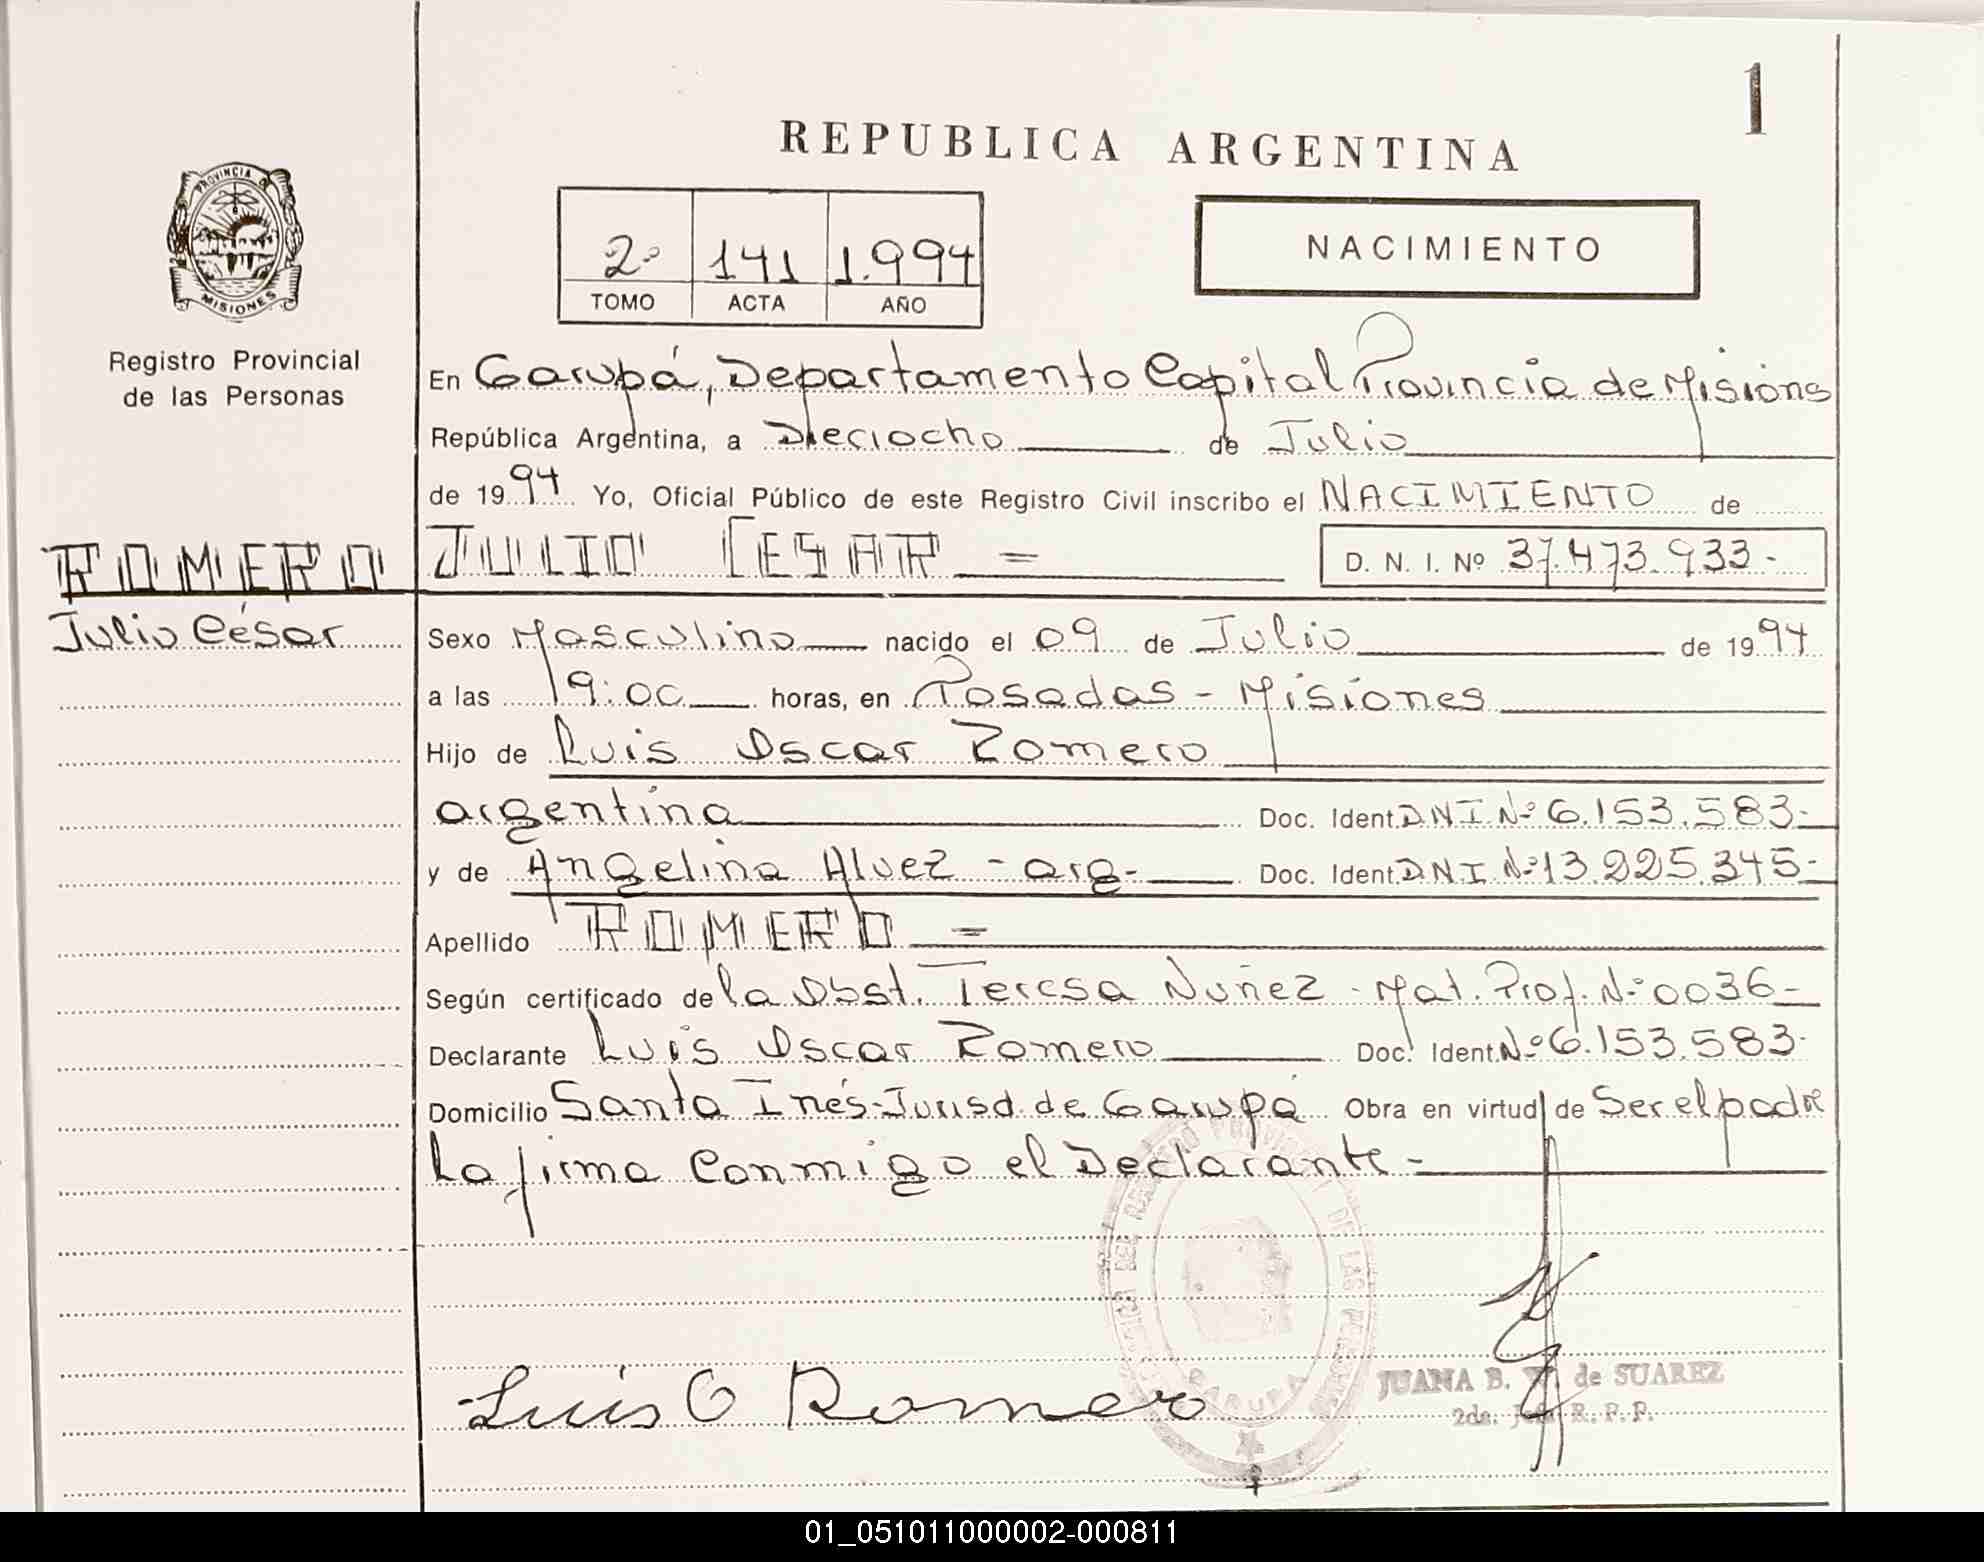 1
REPUBLICA ARGENTINA
PROVINCIA DE
MISIONES
Registro Provincial
de las Personas
2º 141 1.994
TOMO ACTA AÑO
NACIMIENTO
En Garupá, Departamento Capital Provincia de Misiones
República Argentina, a Dieciocho de Julio
de 1994 Yo, Oficial Público de este Registro Civil inscribo el NACIMIENTO de
ROMERO JULIO CESAR = D. N. I. Nº 37.473.933-
Julio César
Sexo Masculino nacido el 09 de Julio de 1994
a las 19:00 horas, en Posadas - Misiones
Hijo de Luis Oscar Romero
argentina Doc. Ident. DNI Nº 6.153.583-
y de Angelina Alvez - arg- Doc. Ident. DNI Nº 13.225.345-
Apellido ROMERO =
Según certificado de la Obst. Teresa Nuñez - Mat. Prof. Nº 0036-
Declarante Luis Oscar Romero Doc. Ident. Nº 6.153.583-
Domicilio Santa Inés - Jurisd. de Garupá Obra en virtud de Ser el padre
La firma Conmigo el Declarante-
Luis O Romero
JUANA B. de SUAREZ
2da. Jefe R. P. P.
GARUPA
01_051011000002-000811